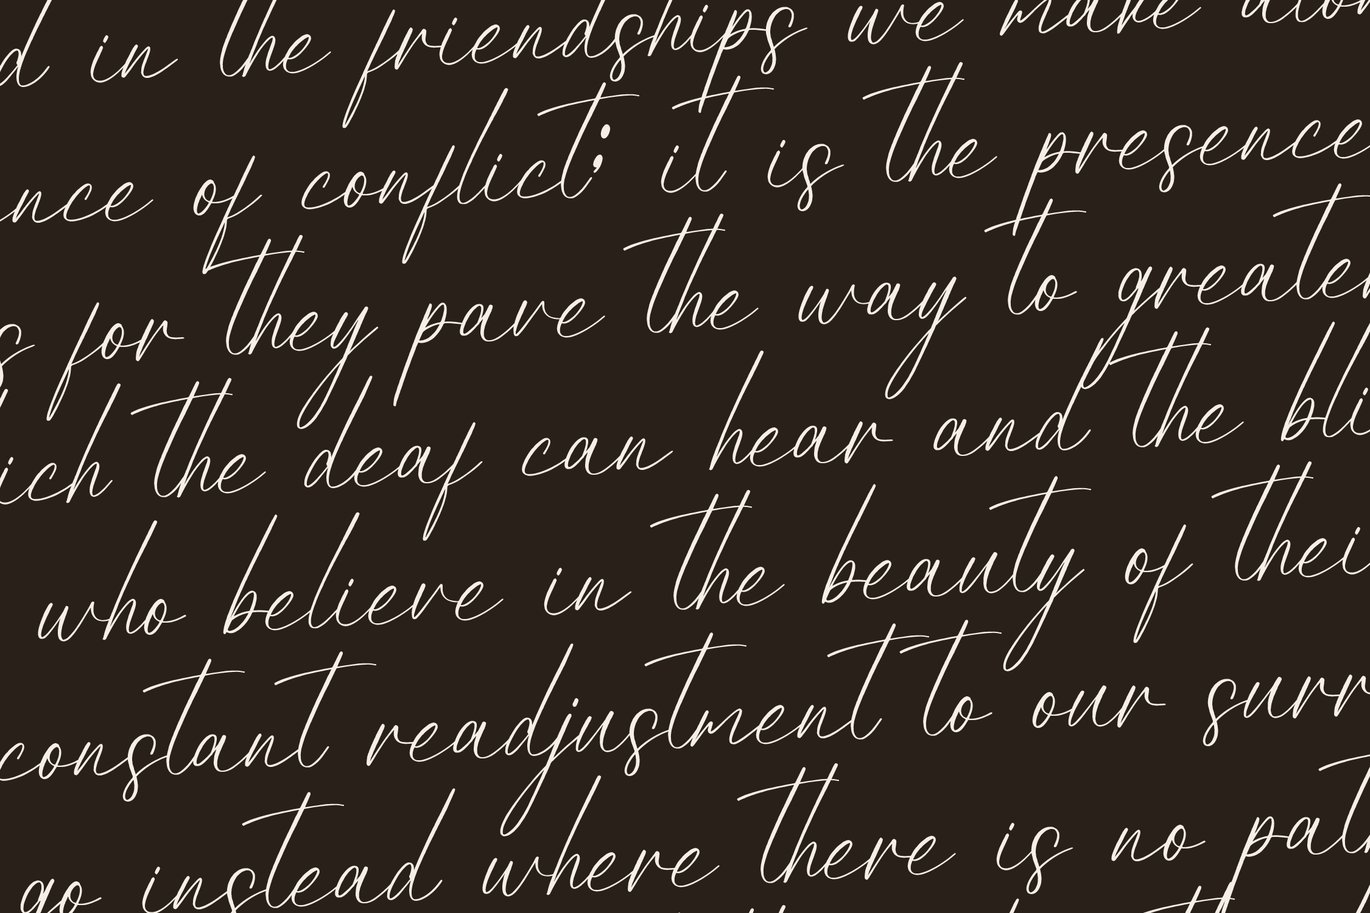 d in the friendships we make alon
nce of conflict; it is the presence
s for they pave the way to greater
ich the deaf can hear and the bli
who believe in the beauty of thei
constant readjustment to our surr
go instead where there is no pat